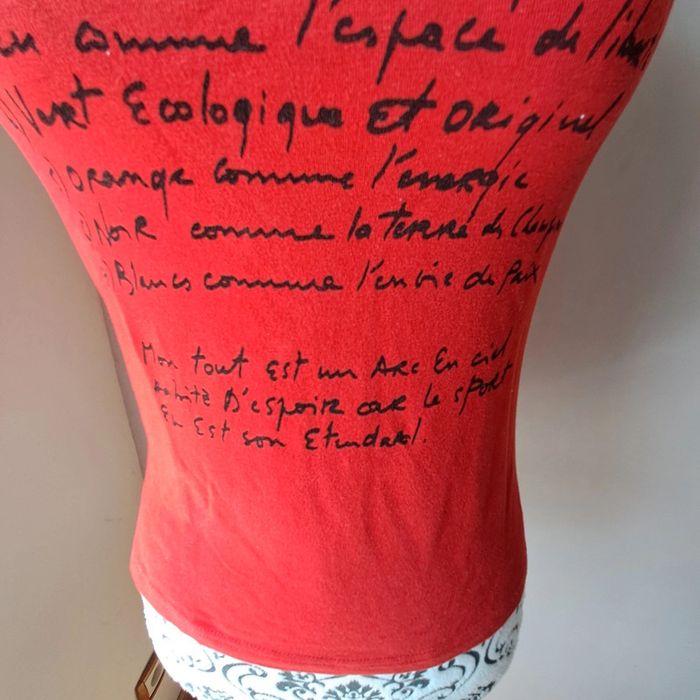 comme l'espace de
Vert Ecologique Et Original
Orange comme l'énergie
Noir comme la terre des
Blancs comme l'envie de Paix
Mon tout est un Arc En ciel
D'espoir car le sport
En Est son Etendard.